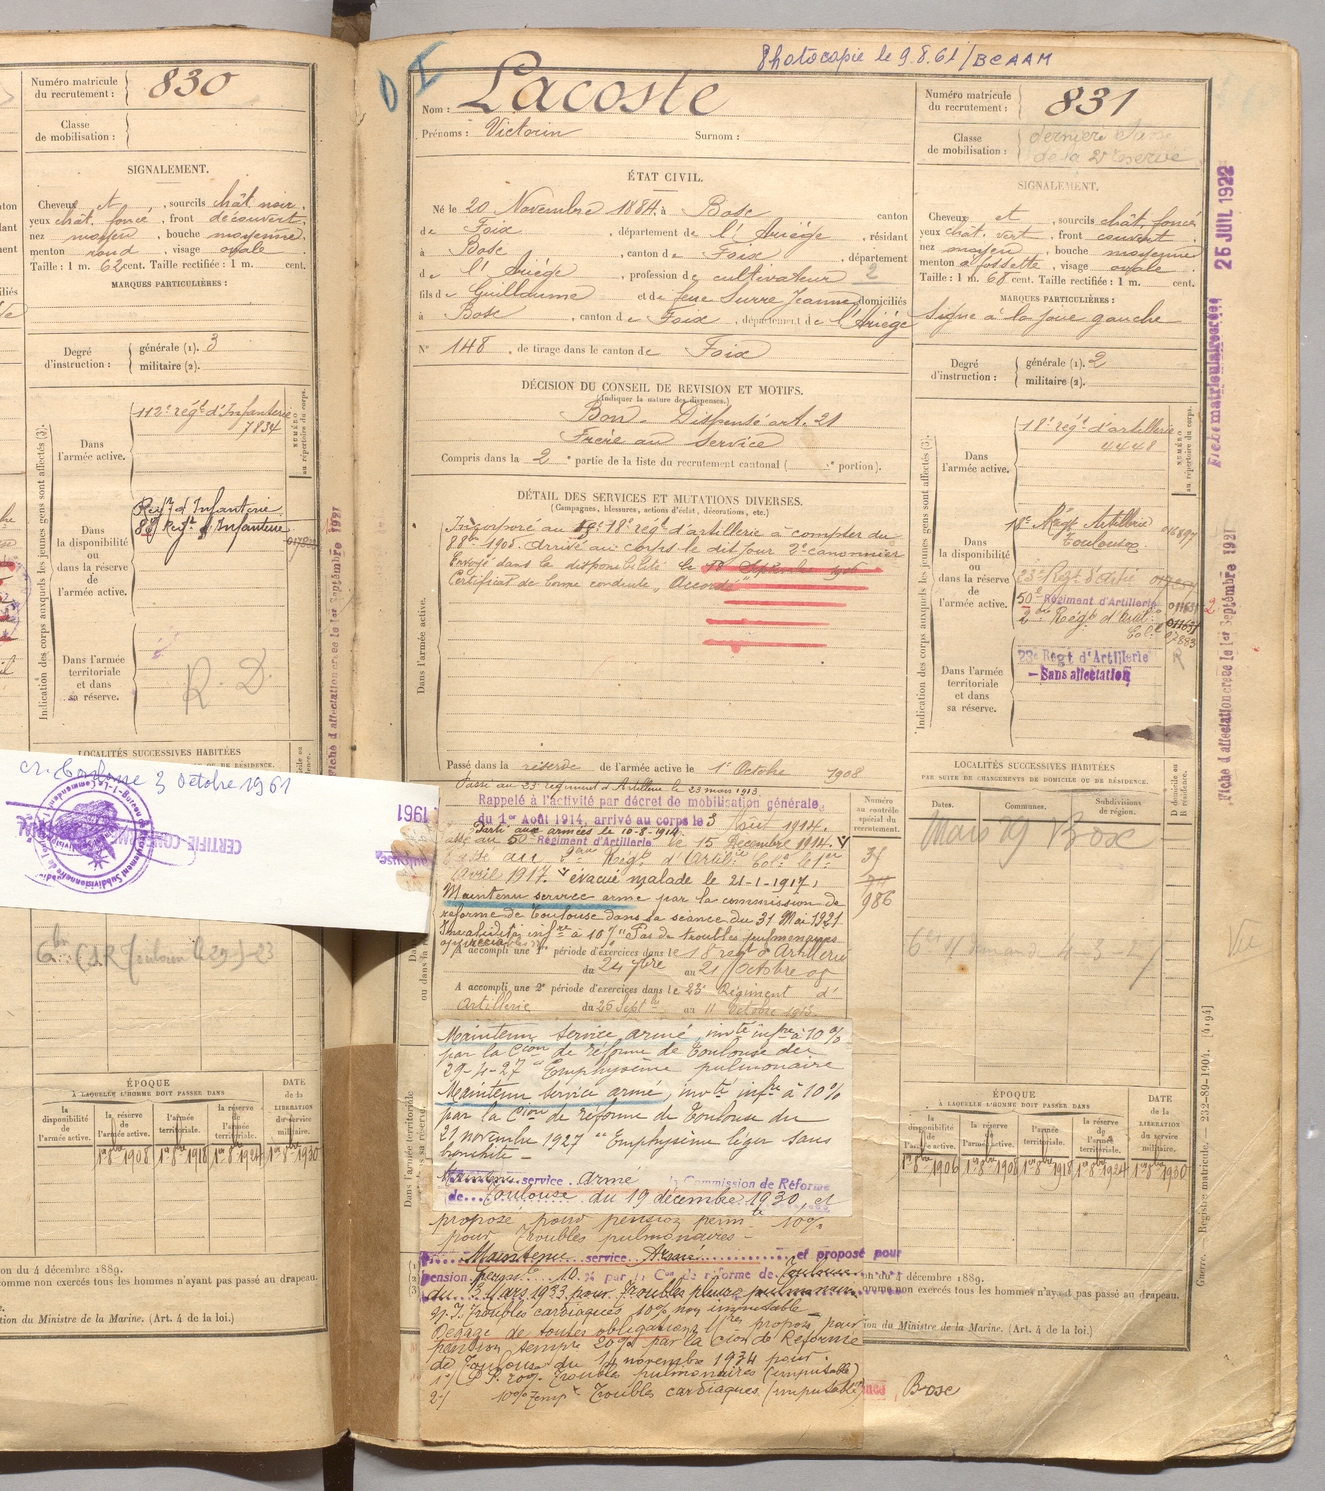 Numéro matricule
du recrutement :
830
Classe
de mobilisation :
SIGNALEMENT.
Cheveux et , sourcils chât. noir,
yeux chât. foncé, front découvert,
nez moyen, bouche moyenne,
menton rond, visage ovale
Taille : 1 m. 62 cent. Taille rectifiée : 1 m. cent.
MARQUES PARTICULIÈRES :
Degré
d'instruction :
générale (1). 3
militaire (2).
Indication des corps auxquels les jeunes gens sont affectés (3).
Dans
l'armée active.
112e régt d'Infanterie
7834
NUMÉRO
au répertoire du corps.
Dans
la disponibilité
ou
dans la réserve
de
l'armée active.
Regt d'Infanterie
Regt d'Infanterie
Dans l'armée
territoriale
et dans
sa réserve.
R. D.
Fiche d'affectation créée le 1er Septembre 1921
LOCALITÉS SUCCESSIVES HABITÉES
3 Octobre 1961
CERTIFIÉ
1961
ÉPOQUE
À LAQUELLE L'HOMME DOIT PASSER DANS
DATE
de la
LIBÉRATION
du service
militaire.
la
disponibilité
de
l'armée active.
la réserve
de
l'armée active.
l'armée
territoriale.
la réserve
de
l'armée
territoriale.
1er 8bre 1908
1er 8bre 1918
1er 8bre 1924
1er 8bre 1930
on du 4 décembre 1889.
comme non exercés tous les hommes n'ayant pas passé au drapeau.
tion du Ministre de la Marine. (Art. 4 de la loi.)
Photocopie le 9.8.61/BCAAM
Nom : Lacoste
Prénoms : Victorin Surnom :
Numéro matricule
du recrutement :
831
Classe
de mobilisation :
dernière classe
de la 2e réserve
ÉTAT CIVIL.
Né le 20 Novembre 1884, à Bosc canton
de Foix, département de l'Ariège, résidant
à Bosc, canton de Foix, département
de l'Ariège, profession de cultivateur
2
fils de Guillaume et de feue Surre Jeanne domiciliés
à Bosc, canton de Foix, département de l'Ariège
N° 148, de tirage dans le canton de Foix
SIGNALEMENT.
Cheveux et , sourcils chât. foncé
yeux chât. vert, front couvert
nez moyen, bouche moyenne
menton à fossette, visage ovale
Taille : 1 m. 68 cent. Taille rectifiée : 1 m. cent.
MARQUES PARTICULIÈRES :
Signe à la joue gauche
Degré
d'instruction :
générale (1). 2
militaire (2).
DÉCISION DU CONSEIL DE REVISION ET MOTIFS.
(Indiquer la nature des dispenses.)
Bon. Dispensé art. 21
Frère au service
Compris dans la 2e partie de la liste du recrutement cantonal ( e portion).
DÉTAIL DES SERVICES ET MUTATIONS DIVERSES.
(Campagnes, blessures, actions d'éclat, décorations, etc.)
Dans l'armée active.
Incorporé au 18e régt d'artillerie à compter du
8 8bre 1905. Arrivé au corps le dit jour 2e canonnier
Envoyé dans la disponibilité le 18 Septembre 1906
Certificat de bonne conduite "Accordé"
Passé dans la réserve de l'armée active le 1er Octobre 1908
Passé au 23 régiment d'Artillerie le 23 mars 1913
Rappelé à l'activité par décret de mobilisation générale
du 1er Août 1914, arrivé au corps le 3 Août 1914.
Parti aux armées le 10-8-1914.
Passé au 50e Régiment d'Artillerie le 15 Décembre 1914.
Passé au 2ème Régt d'Artie Cole le 1er
Avril 1917. évacué malade le 21-1-1917,
Maintenu service armé par la commission de
réforme de Toulouse dans sa séance du 31 Mai 1921
Invalidité infre à 10% "Pas de troubles pulmonaires
appréciables"
A accompli une 1re période d'exercices dans le 18 régt d'Artillerie
du 24 7bre au 21 Octobre
A accompli une 2e période d'exercices dans le 23e Régiment d'
Artillerie du 25 Septbre au 11 Octobre 1913
Numéro
au contrôle
spécial du
recrutement.
986
Maintenu service armé, invté infre à 10%
par la Cion de réforme de Toulouse du
29-4-27 "Emphysème pulmonaire
Maintenu service armé, invté infre à 10%
par la Cion de réforme de Toulouse du
21 novembre 1927 "Emphysème léger sans
bronchite -
Maintenu service armé la Commission de Réforme
de Toulouse du 19 décembre 1930, et
proposé pour pension permte 10%
pour Troubles pulmonaires -
Maintenu service Armé et proposé pour
pension 10 % par la Con de réforme de Toulouse
du 3 Mars 1933 pour Troubles pulmonaires
Troubles cardiaques 10% non imputable -
Dégagé de toutes obligations proposé pour
pension temp. 20% par la Cion de Réforme
de Toulouse du 14 novembre 1934 pour :
1°/ P.P. 20% Troubles pulmonaires (imputable)
2°/ 10% temp. Troubles cardiaques (imputable)
Bosc
Indication des corps auxquels les jeunes gens sont affectés (3).
Dans
l'armée active.
18e régt d'artillerie
4448
NUMÉRO
au répertoire du corps.
Dans
la disponibilité
ou
dans la réserve
de
l'armée active.
18e Régt Artillerie
Toulouse
23e Régt d'Artie
50e Régiment d'Artillerie
2me Régt d'Artie
Cole
Dans l'armée
territoriale
et dans
sa réserve.
23e Régt d'Artillerie
- Sans affectation
R
LOCALITÉS SUCCESSIVES HABITÉES
PAR SUITE DE CHANGEMENTS DE DOMICILE OU DE RÉSIDENCE.
Dates.
Communes.
Subdivisions
de région.
D domicile ou
R résidence.
Mars 29 Bosc
Vu
ÉPOQUE
À LAQUELLE L'HOMME DOIT PASSER DANS
DATE
de la
LIBÉRATION
du service
militaire.
la
disponibilité
de
l'armée active.
la réserve
de
l'armée active.
l'armée
territoriale.
la réserve
de
l'armée
territoriale.
1er 8bre 1906
1er 8bre 1908
1er 8bre 1918
1er 8bre 1924
1er 8bre 1930
on du 4 décembre 1889.
comme non exercés tous les hommes n'ayant pas passé au drapeau.
tion du Ministre de la Marine. (Art. 4 de la loi.)
Fiche matriculaire créée 26 JUIL 1922
Fiche d'affectation créée le 1er Septembre 1921
Guerre. Registre matricule. — 232-89-1904. [4194]